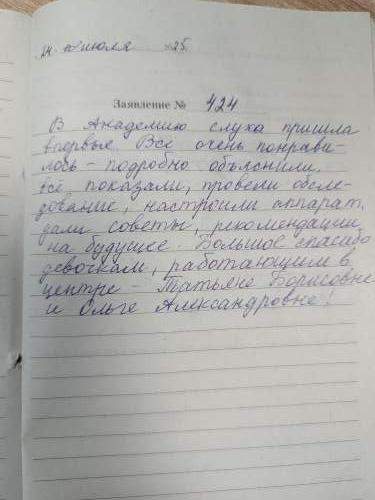 24 июля 25.
Заявление № 424
В Академию слуха пришла
впервые. Всё очень понрави-
лось - подробно объяснили.
всё, показали, провели обсле-
дование, настроили аппарат,
дали советы, рекомендации
на будущее. Большое спасибо
девочкам, работающим в
центре - Татьяне Борисовне
и Ольге Александровне!